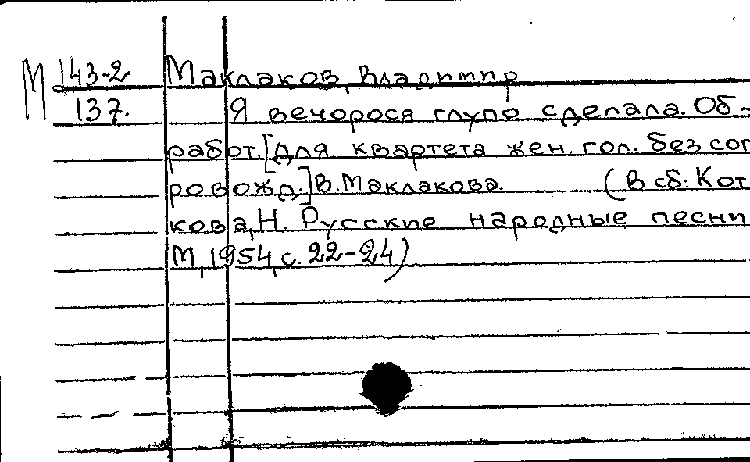 М 143-2 Маклаков, Владимир
137. Я вечорося глупо сделала. Об-
работ. [для квартета жен. гол. без соп
ровожд.] В. Маклакова. (В сб: Кот
кова, Н. Русские народные песни
М, 1954, с. 22-24)